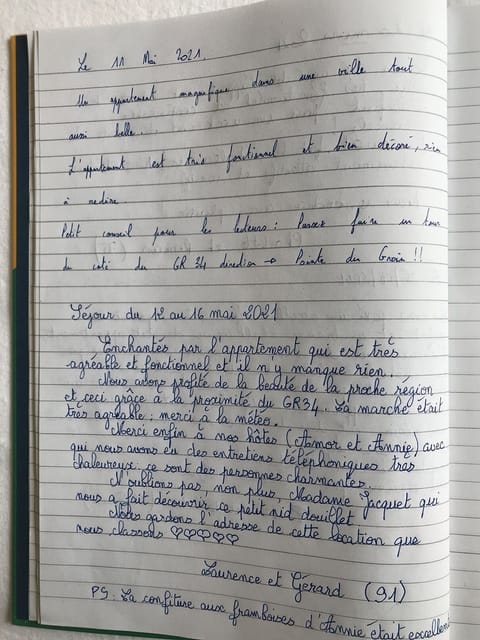 Le 11 Mai 2021.
Un appartement magnifique dans une ville tout
aussi belle.
L'appartement est très fonctionnel et bien décoré, rien
à redire.
Petit conseil pour les lecteurs : Passez faire un tour
du coté du GR 34 direction → Pointe du Groin !!
Séjour du 12 au 16 mai 2021
Enchantés par l'appartement qui est très
agréable et fonctionnel et il n'y manque rien.
Nous avons profité de la beauté de la proche région
et ceci grâce à la proximité du GR34. La marche était
très agréable : merci à la météo.
Merci enfin à nos hôtes (Amor et Annie) avec
qui nous avons eu des entretiens téléphoniques très
chaleureux, ce sont des personnes charmantes.
N'oublions pas, non plus, Madame Jacquet qui
nous a fait découvrir ce petit nid douillet
Nous gardons l'adresse de cette location que
nous classons ♡♡♡♡♡
Laurence et Gérard (91)
PS : La confiture aux framboises d'Annie était excellent